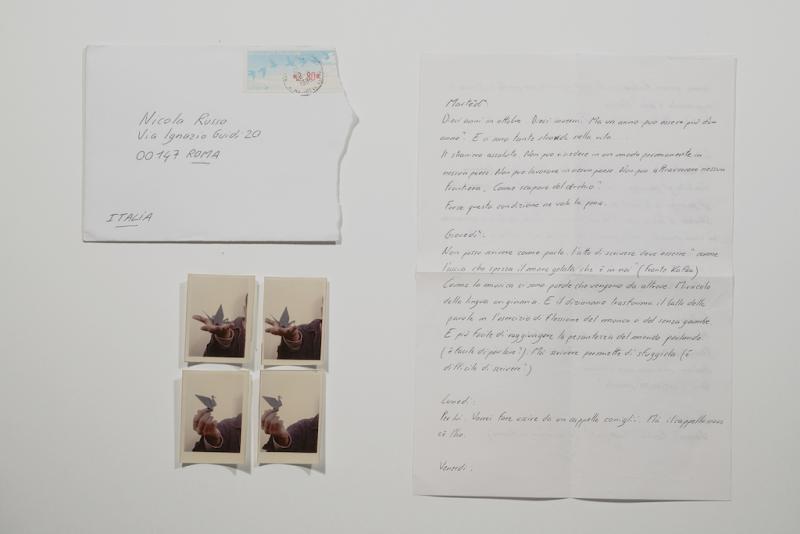 Nicola Russo
Via Ignazio Guidi 20
00147 ROMA
ITALIA
2.80
Martedì
Dieci anni in ottobre. Dieci inverni. Ma un anno può essere più d'un
anno. E ci sono tante nella vita.
Lo straniero assoluto. Non può risiedere in un modo permanente in
nessun paese. Non può lavorare in nessun paese. Non può attraversare nessuna
frontiera. Come scappare del cerchio?
Forse questa condizione ne vale la pena.
Giovedì.
Non posso scrivere come parlo. L'atto di scrivere deve essere "come
l'ascia che spezza il mare gelato che è in noi" (Franz Kafka)
Come la musica ci sono parole che vengono da altrove. Miracolo
della lingua originaria. E il dizionario trasforma il ballo delle
parole in l'esercizio di flessione del monco o del senza gambe
E più facile di raggiungere la pesantezza del mondo parlando
(è facile di parlare?). Ma scrivere permette di sfuggirla (è
difficile di scrivere?)
Lunedì:
Per lui. Vorrei fare uscire da un cappello conigli. Ma il cappello
ce l'ho.
Venerdì: